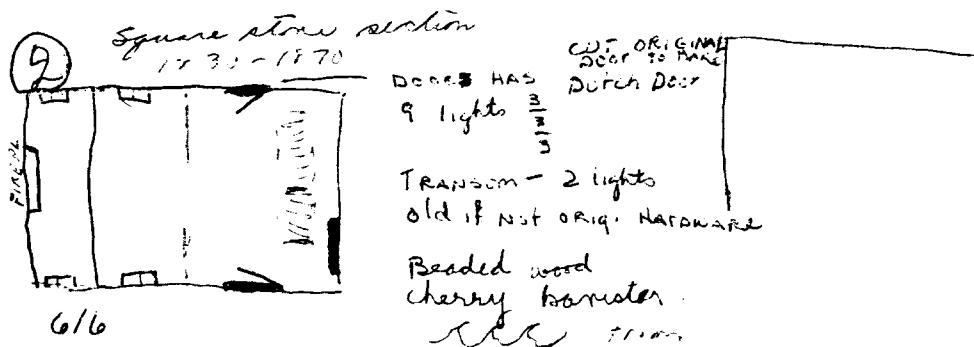 2
Square stone section
1830-1870
FIREPL
6/6
DOORS HAS
9 lights 3
3
3
CUT ORIGINAL
DOOR TO MAKE
DUTCH DOOR
TRANSOM - 2 lights
old if NOT ORIG. HARDWARE
Beaded wood
cherry banister